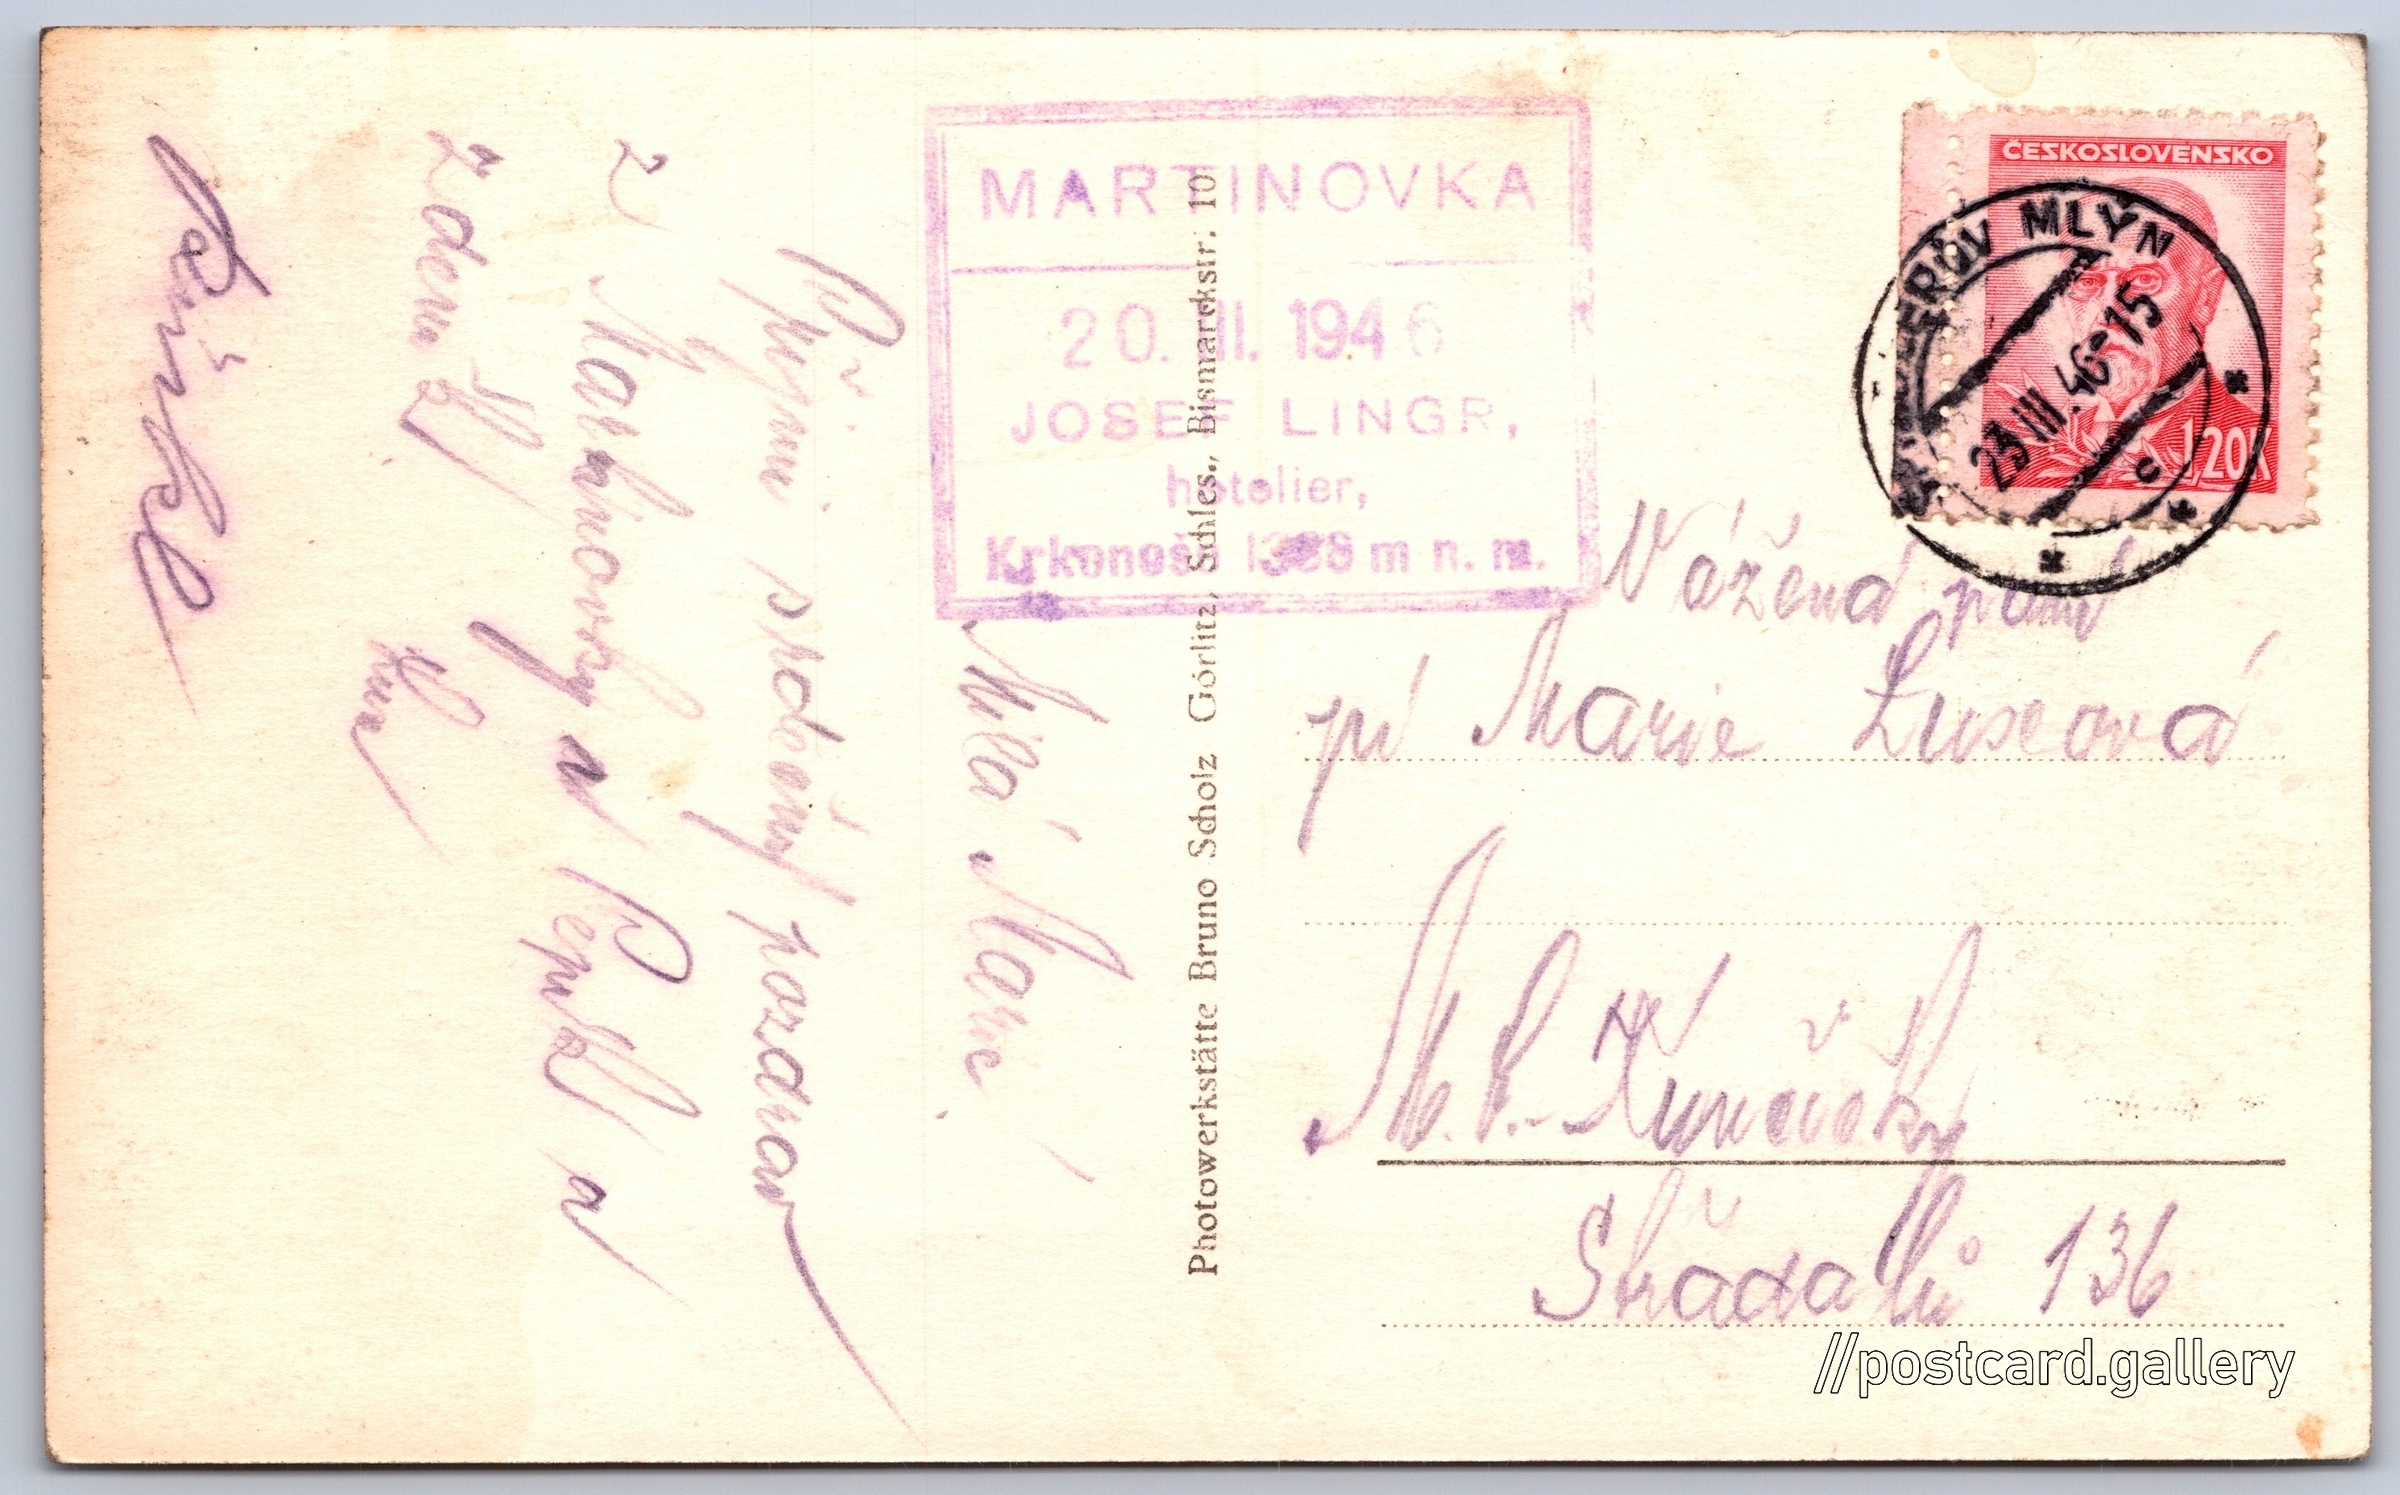 MARTINOVKA
20. III. 1946
JOSEF LINGR,
hotelier,
Krkonoše 1388 m n. m.
ČESKOSLOVENSKO
1,20K
ERŮV MLÝN
23. III. 46-15
C
Milá Marie!
Přijmi srdečný pozdrav
z Martinovky a Pepík a
Zdena
Photowerkstätte Bruno Scholz Görlitz, Schles., Bismarckstr. 10
Vážená paní
pí Marie
Kunčičky
136
//postcard.gallery